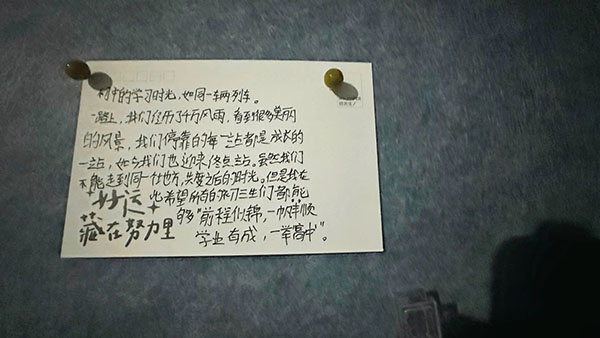 初中的学习时光,如同一辆列车。
一路上,我们经历了千万风雨,看到很多美丽
的风景,我们停靠的每一站都是成长的
一站,如今我们也迎来终点站。虽然我们
不能走到同一个地方,共度之后的时光。但是我在
此希望所有的初三生们都能
好运+
够"前程似锦,一帆丰顺
藏在努力里
学业有成,一举高中"。